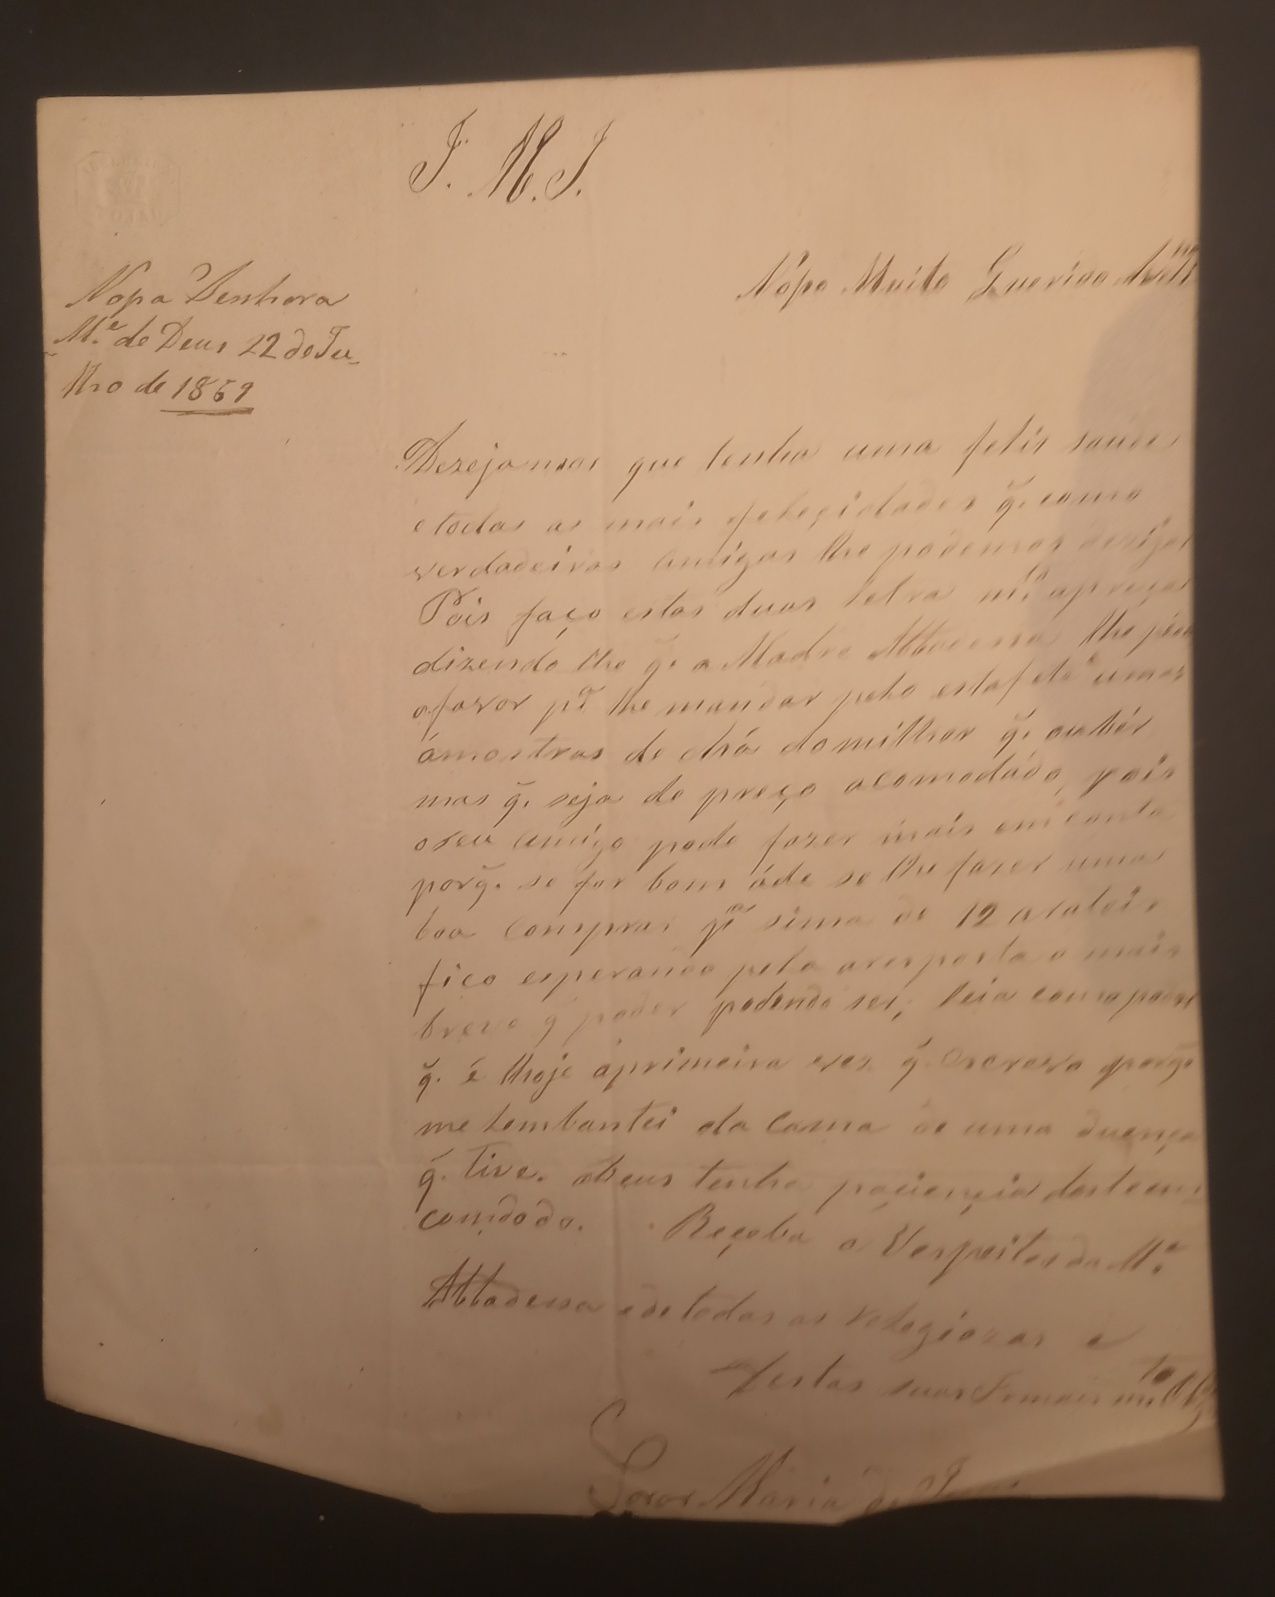 J. M. J.
Nossa Senhora
M.e de Deus 22 de Ju-
lho de 1869
Nósso Muito Querido
Dezejamos que tenha uma felis saude
e todas as mais felecidades q̃. como
verdadeiras amigas lhe podemos dezijar
Pois faço estas duas letra m.to apreçar
dizendo lhe q̃. a Madre Abbadessa lhe péde
o favor p.a lhe mandar pelo estafeta umas
ámostras de chá do milhor q̃. ouber
mas q̃. seja de preço acomodádo, pois
o seu amigo pode fazer mais em conta
porq̃. se for bom áde se lhe fazer uma
boa compra; p.a sima de 12 arateis
fico esperando pela aresposta o mais
breve q̃ poder podendo ser; leia como poder
q̃. é hoje áprimeira ves q̃. escrevo porq̃.
me lembantei da cama de uma duença
q̃. tive. adeus tenha paciençia deste em
comodo. Reçeba os Respeitos da M.e
Abbadessa e de todas as relegiozas e
destas suas Irmais m.to
Soror Maria de